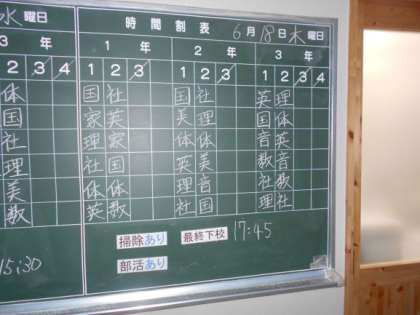 水 曜日 時間割表 6月18日木曜日
3年 1年 2年 3年
2 3 4 1 2 3 1 2 3 1 2 3 4
体 国 社 国 社 英 理
国 家 英 美 理 国 体
社 理 家 体 体 音 英
理 社 国 英 美 数 音
美 体 体 理 音 社 数
数 英 数 社 国 理 社
掃除あり 最終下校 17:45
15:30 部活あり